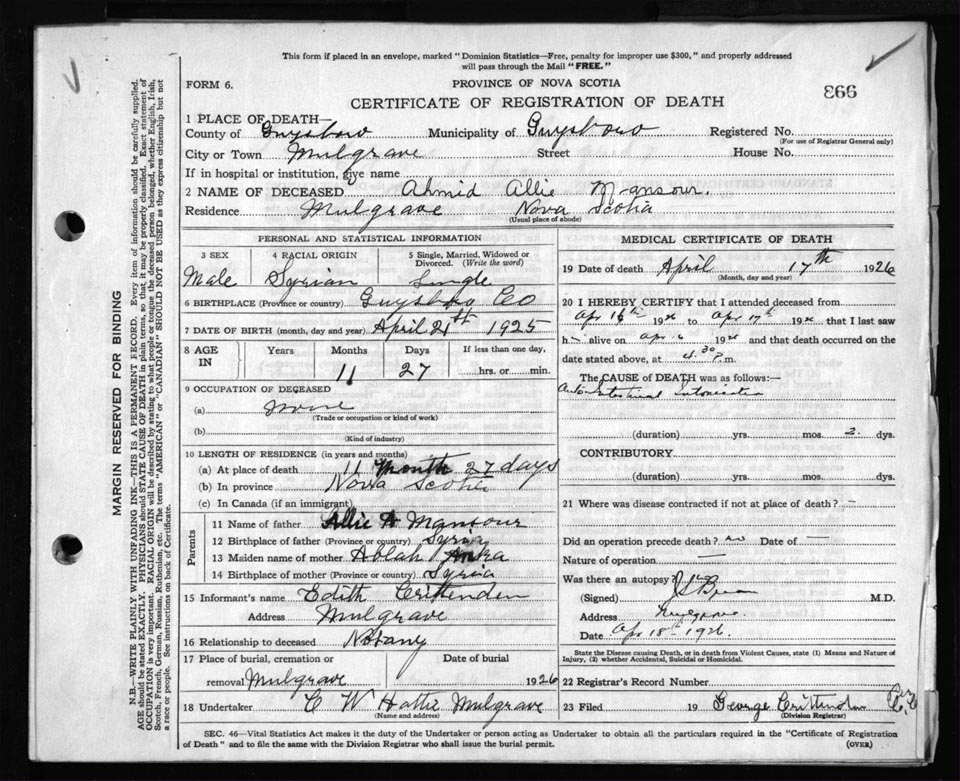 This form if placed in an envelope, marked "Dominion Statistics—Free, penalty for improper use $300," and properly addressed
will pass through the Mail "FREE."
FORM 6.
PROVINCE OF NOVA SCOTIA
993
CERTIFICATE OF REGISTRATION OF DEATH
1 PLACE OF DEATH—
County of Guysboro Municipality of Guysboro Registered No.
(For use of Registrar General only)
City or Town Mulgrave Street House No.
If in hospital or institution, give name
2 NAME OF DECEASED Ahmid Allie Mansour.
Residence Mulgrave Nova Scotia
(Usual place of abode)
PERSONAL AND STATISTICAL INFORMATION
3 SEX 4 RACIAL ORIGIN 5 Single, Married, Widowed or
Divorced. (Write the word)
Male Syrian Single
6 BIRTHPLACE (Province or country) Guysboro Co
7 DATE OF BIRTH (month, day and year) April 21th 1925
8 AGE IN Years Months Days If less than one day,
11 27 hrs. or min.
9 OCCUPATION OF DECEASED
(a) None
(Trade or occupation or kind of work)
(b)
(Kind of industry)
10 LENGTH OF RESIDENCE (in years and months)
(a) At place of death 11 Month 27 days
(b) In province Nova Scotia
(c) In Canada (if an immigrant)
Parents
11 Name of father Allie A Mansour
12 Birthplace of father (Province or country) Syria
13 Maiden name of mother Ablah
14 Birthplace of mother (Province or country) Syria
15 Informant's name Edith Crittenden
Address Mulgrave
16 Relationship to deceased Notany
17 Place of burial, cremation or Date of burial
removal Mulgrave 1926
18 Undertaker C W Hattie Mulgrave
(Name and address)
MEDICAL CERTIFICATE OF DEATH
19 Date of death April 17th 1926
(Month, day and year)
20 I HEREBY CERTIFY that I attended deceased from
Apr 16th 1926 to Apr 17th 1926 that I last saw
h alive on Apr 16 1926 and that death occurred on the
date stated above, at 4.30 P.m.
The CAUSE OF DEATH was as follows:—
Auto Intestinal Intoxication
(duration) yrs. mos. 2. dys.
CONTRIBUTORY
(duration) yrs. mos. dys.
21 Where was disease contracted if not at place of death? —
Did an operation precede death? no Date of —
Nature of operation —
Was there an autopsy?
(Signed) M.D.
Address Mulgrave
Date Apr 18th 1926.
State the Disease causing Death, or in death from Violent Causes, state (1) Means and Nature of
Injury, (2) whether Accidental, Suicidal or Homicidal.
22 Registrar's Record Number
23 Filed 19 George Crittenden
(Division Registrar)
SEC. 46—Vital Statistics Act makes it the duty of the Undertaker or person acting as Undertaker to obtain all the particulars required in the "Certificate of Registration
of Death" and to file the same with the Division Registrar who shall issue the burial permit.
(OVER)
MARGIN RESERVED FOR BINDING
N.B.—WRITE PLAINLY WITH UNFADING INK—THIS IS A PERMANENT RECORD. Every item of information should be carefully supplied.
AGE should be stated EXACTLY. PHYSICIANS should STATE CAUSE OF DEATH in plain terms, so that it may be properly classified. Exact statement of
OCCUPATION is very important. RACIAL ORIGIN will be described by stating to what people or tongue the deceased person belonged, whether English, Irish,
Scotch, French, German, Russian, Ruthenian, etc. The terms "AMERICAN" or "CANADIAN" SHOULD NOT BE USED as they express citizenship but not
a race or people. See instructions on back of Certificate.